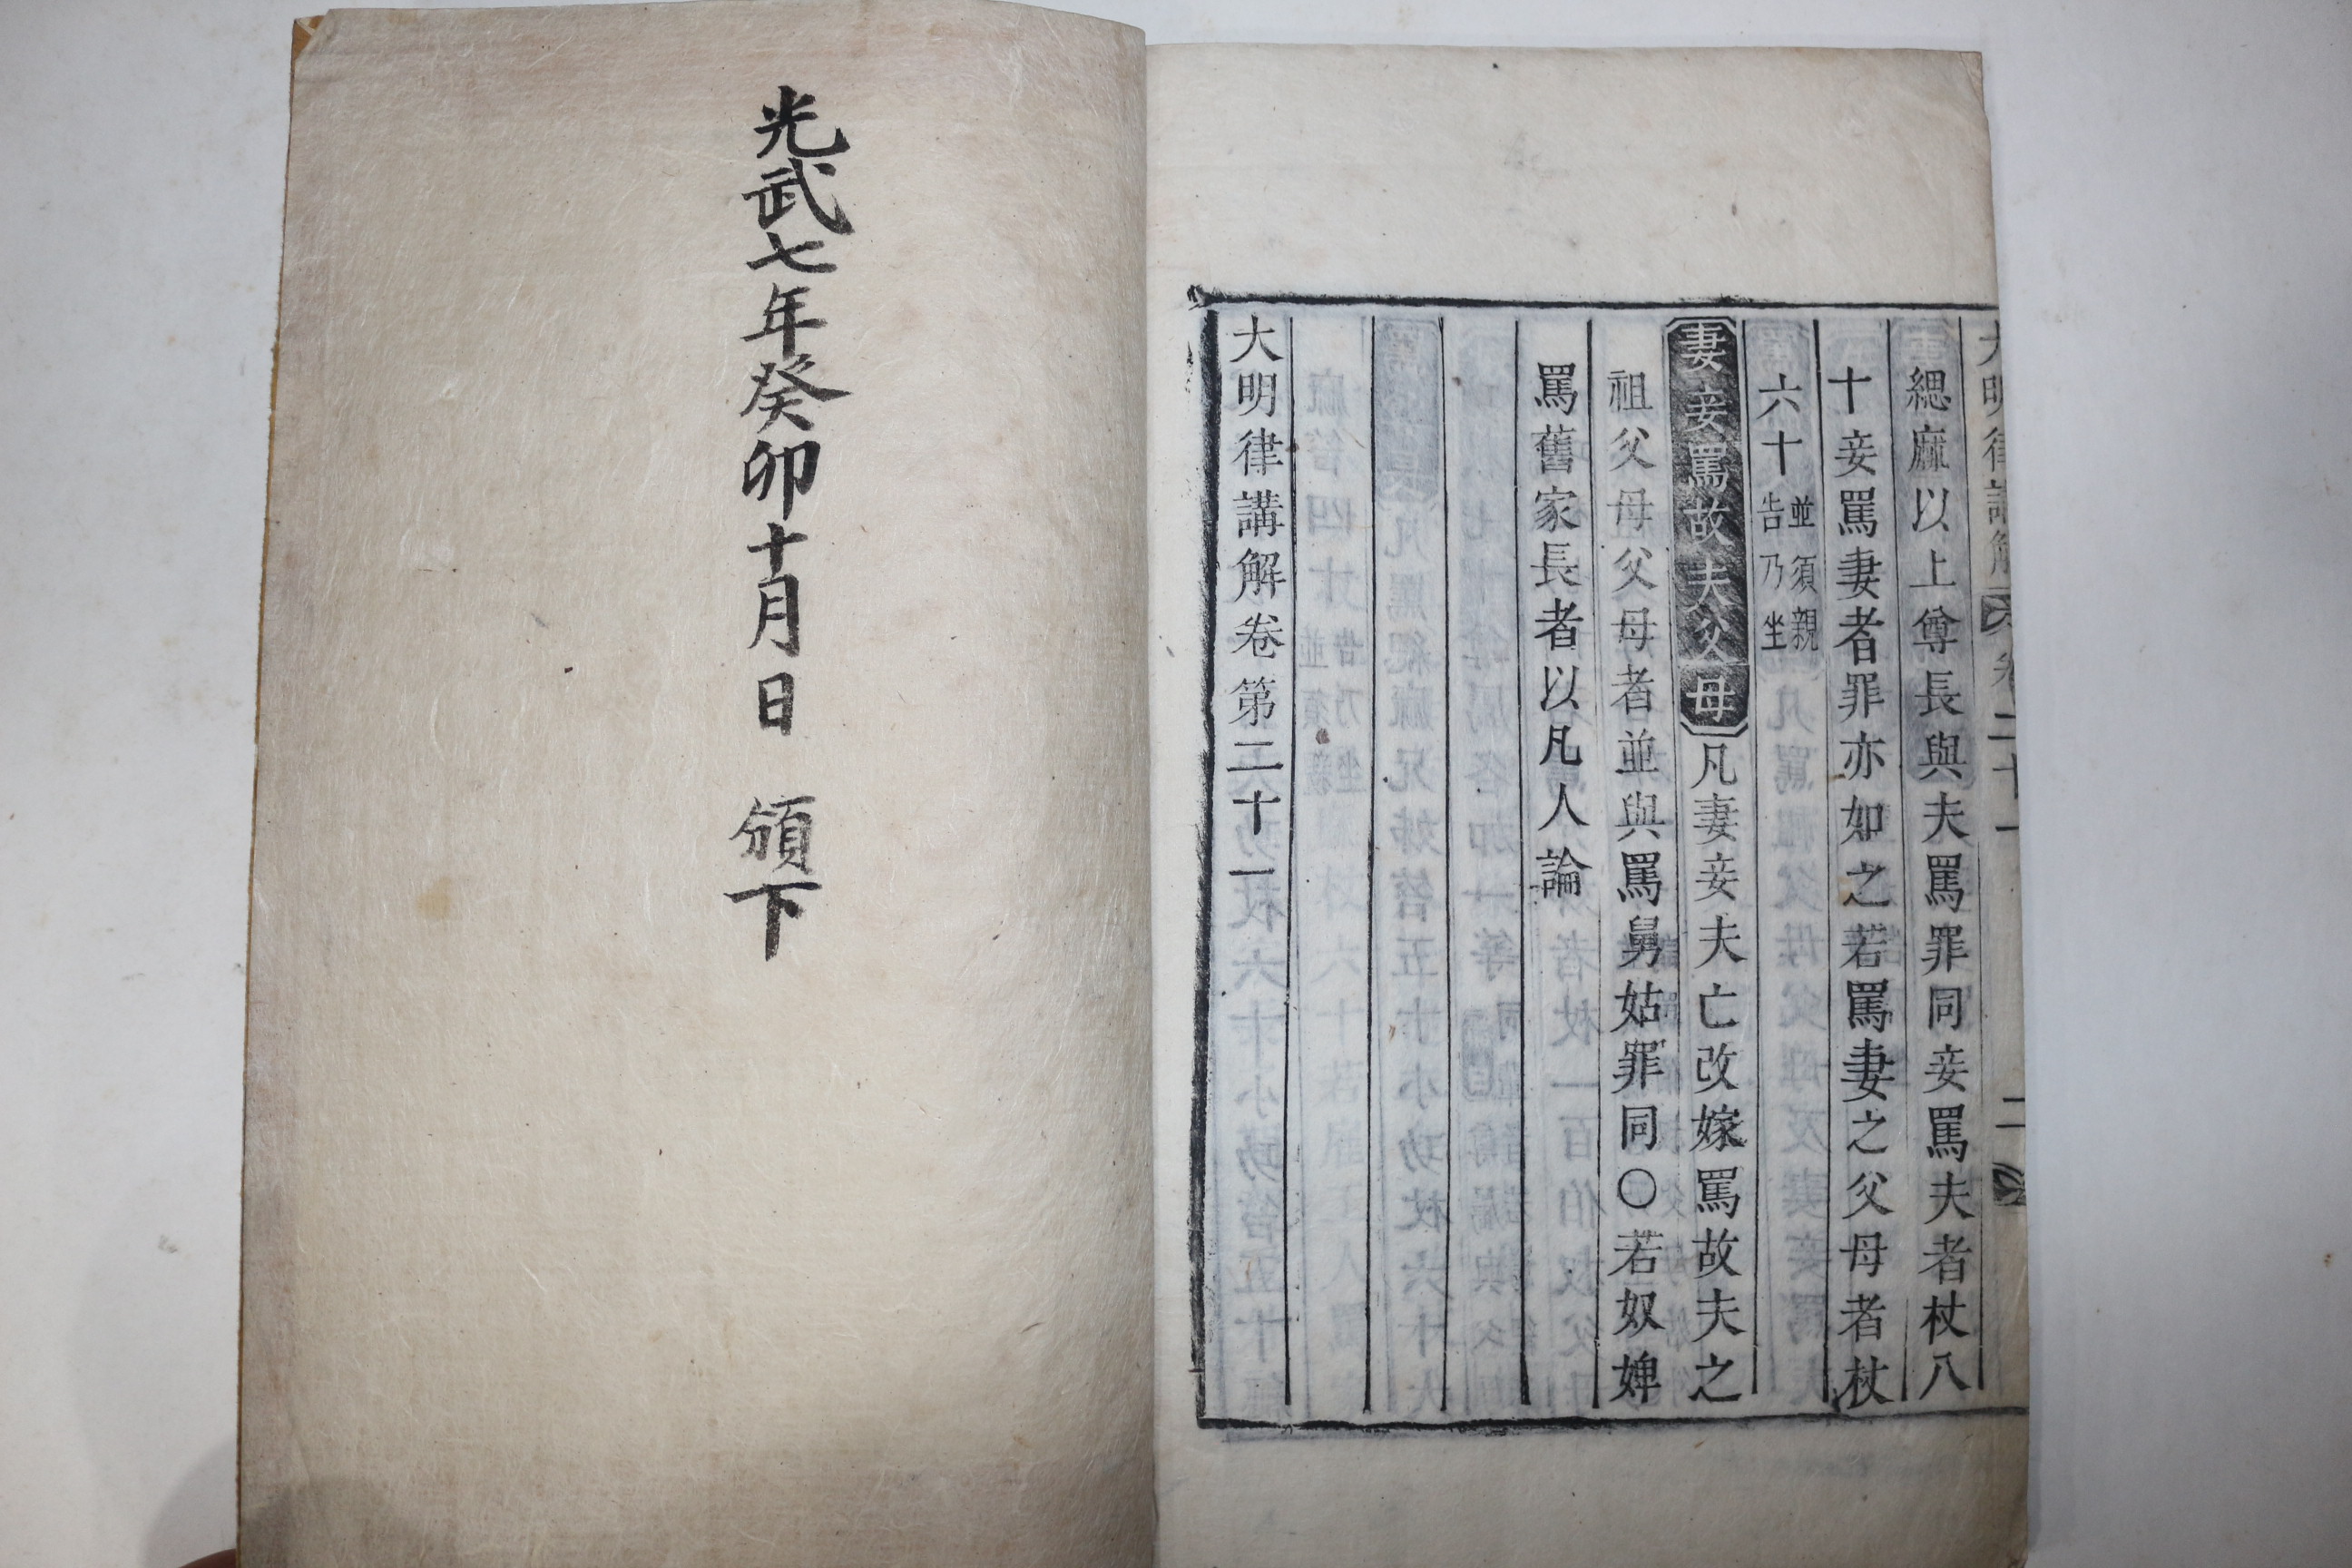 大明律講解 卷二十一 二
緦麻以上尊長與夫罵罪同妾罵夫者杖八
十妾罵妻者罪亦如之若罵妻之父母者杖
六十並須親告乃坐
妻妾罵故夫父母凡妻妾夫亡改嫁罵故夫之
祖父母父母者並與罵舅姑罪同○若奴婢
罵舊家長者以凡人論
大明律講解卷第二十一
光武七年癸卯十月日 頒下